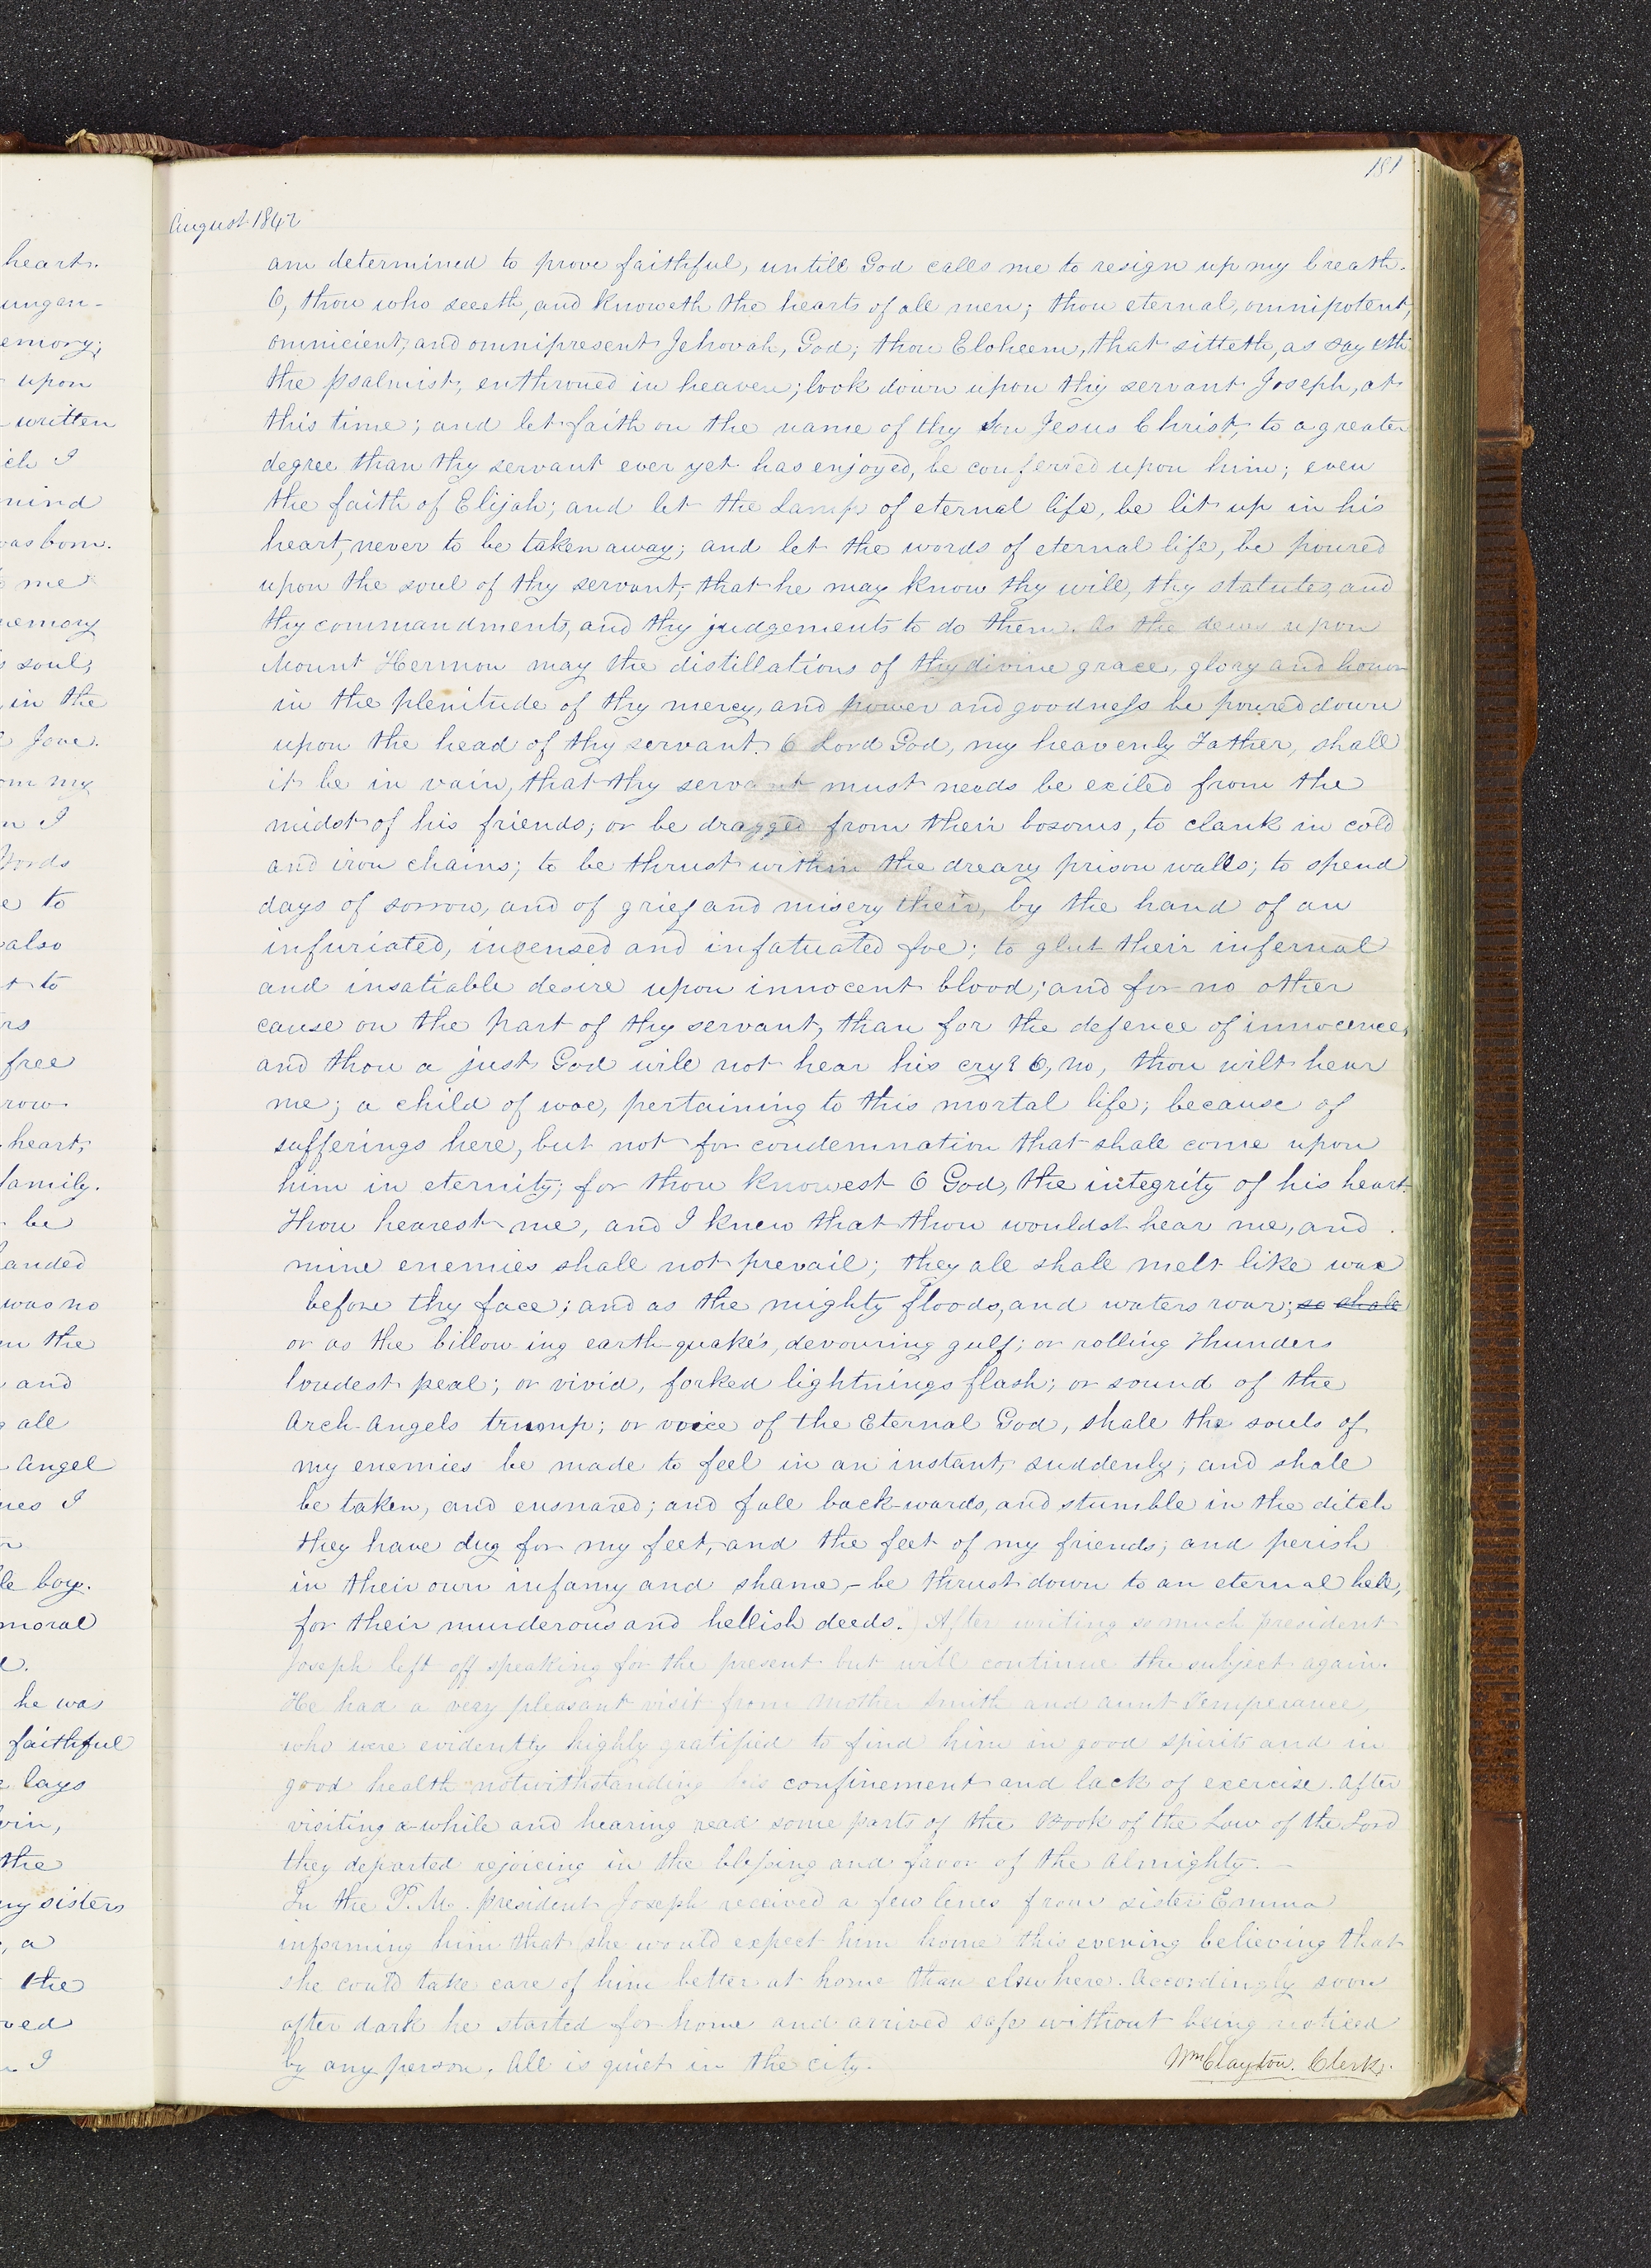 181
August 1842
am determined to prove faithful, untill God calls me to resign up my breath.
O, thou who seeeth, and knoweth the hearts of all men; thou eternal, omnipotent,
omnicient, and omnipresent Jehovah, God; thou Eloheem, that sitteth, as sayeth
the psalmist; enthroned in heaven; look down upon thy servant Joseph, at
this time; and let faith on the name of thy Son Jesus Christ, to a greater
degree than thy servant ever yet has enjoyed, be conferred upon him; even
the faith of Elijah; and let the Lamp of eternal life, be lit up in his
heart, never to be taken away; and let the words of eternal life, be poured
upon the soul of thy servant; that he may know thy will, thy statutes, and
thy commandments, and thy judgements to do them. As the dews upon
Mount Hermon may the distillations of thy divine grace, glory and honor
in the plenitude of thy mercy, and power and goodness be poured down
upon the head of thy servant. O Lord God, my heavenly Father, shall
it be in vain, that thy servant must needs be exiled from the
midst of his friends; or be dragged from their bosoms, to clank in cold
and iron chains; to be thrust within the dreary prison walls; to spend
days of sorrow, and of grief and misery their, by the hand of an
infuriated, incensed and infatuated foe; to glut their infernal
and insatiable desire upon innocent blood; and for no other
cause on the part of thy servant, than for the defence of innocence,
and thou a just God will not hear his cry? O, no, thou wilt hear
me; a child of woe, pertaining to this mortal life; because of
sufferings here, but not for condemnation that shall come upon
him in eternity; for thou knowest O God, the integrity of his heart.
Thou hearest me, and I knew that thou wouldst hear me, and
mine enemies shall not prevail; they all shall melt like wax
before thy face; and as the mighty floods, and waters roar; so shall
or as the billow-ing earth-quake's, devouring gulf; or rolling thunders
loudest peal; or vivid, forked lightnings flash; or sound of the
Arch-Angels trump; or voice of the Eternal God, shall the souls of
my enemies be made to feel in an instant, suddenly; and shall
be taken, and ensnared; and fall back-wards, and stumble in the ditch
they have dug for my feet, and the feet of my friends; and perish
in their own infamy and shame,- be thrust down to an eternal hell,
for their murderous and hellish deeds.") After writing so much president
Joseph left off speaking for the present but will continue the subject again.
He had a very pleasant visit from Mother Smith and aunt Temperance,
who were evidently highly gratified to find him in good spirits and in
good health notwithstanding his confinement and lack of exercise. After
visiting a-while and hearing read some parts of the Book of the Law of the Lord
they departed rejoicing in the blessing and favor of the Almighty. —
In the P.M. president Joseph received a few lines from sister Emma
informing him that she would expect him home this evening believing that
she could take care of him better at home than elsewhere. Accordingly soon
after dark he started for home and arrived safe without being noticed
by any person. All is quiet in the city.
Wm Clayton. Clerk.
hearts.
emory;
upon
written
ch I
mind
was born.
me
emory
soul;
in the
Jove.
om my
n I
ords
e to
also
t to
rs
free
row
heart;
family.
be
anded
was no
in the
and
all
Angel
nes I
le boy.
moral
he wa
faithful
lays
vin,
the
my sisters
, a
the
ved
I